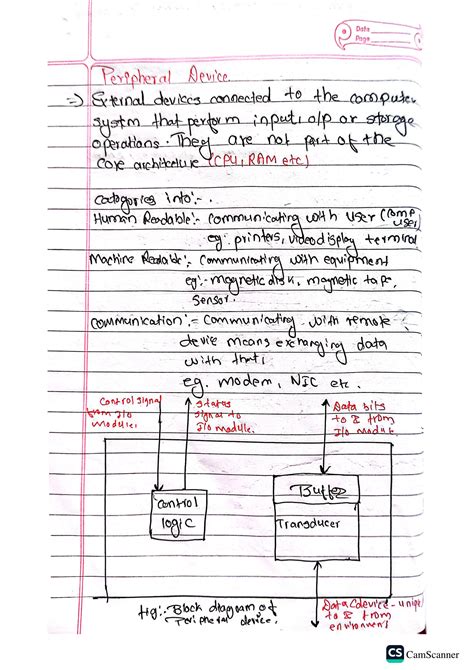 Date
Page
Peripheral Device
=) External devices connected to the computer
system that perform input, o/p or storage
operations. They are not part of the
core architecture (CPU, RAM etc)
Categories into:-
Human Readable:- Communicating with user (comp user)
eg: printers, video display terminal
Machine Readable:- Communicating with equipment
eg:- magnetic disk, magnetic tape,
sensor.
Communication:- Communicating with remote
device means exchanging data
with that,
eg. modem, NIC etc.
Control signal
from I/O
module.
Status
signal to
I/o module.
Data bits
to & from
I/o module.
Control
logic
Buffer
Transducer
fig:- Block diagram of
Peripheral device.
Data (device-uniqe
to & from
environment
CS CamScanner